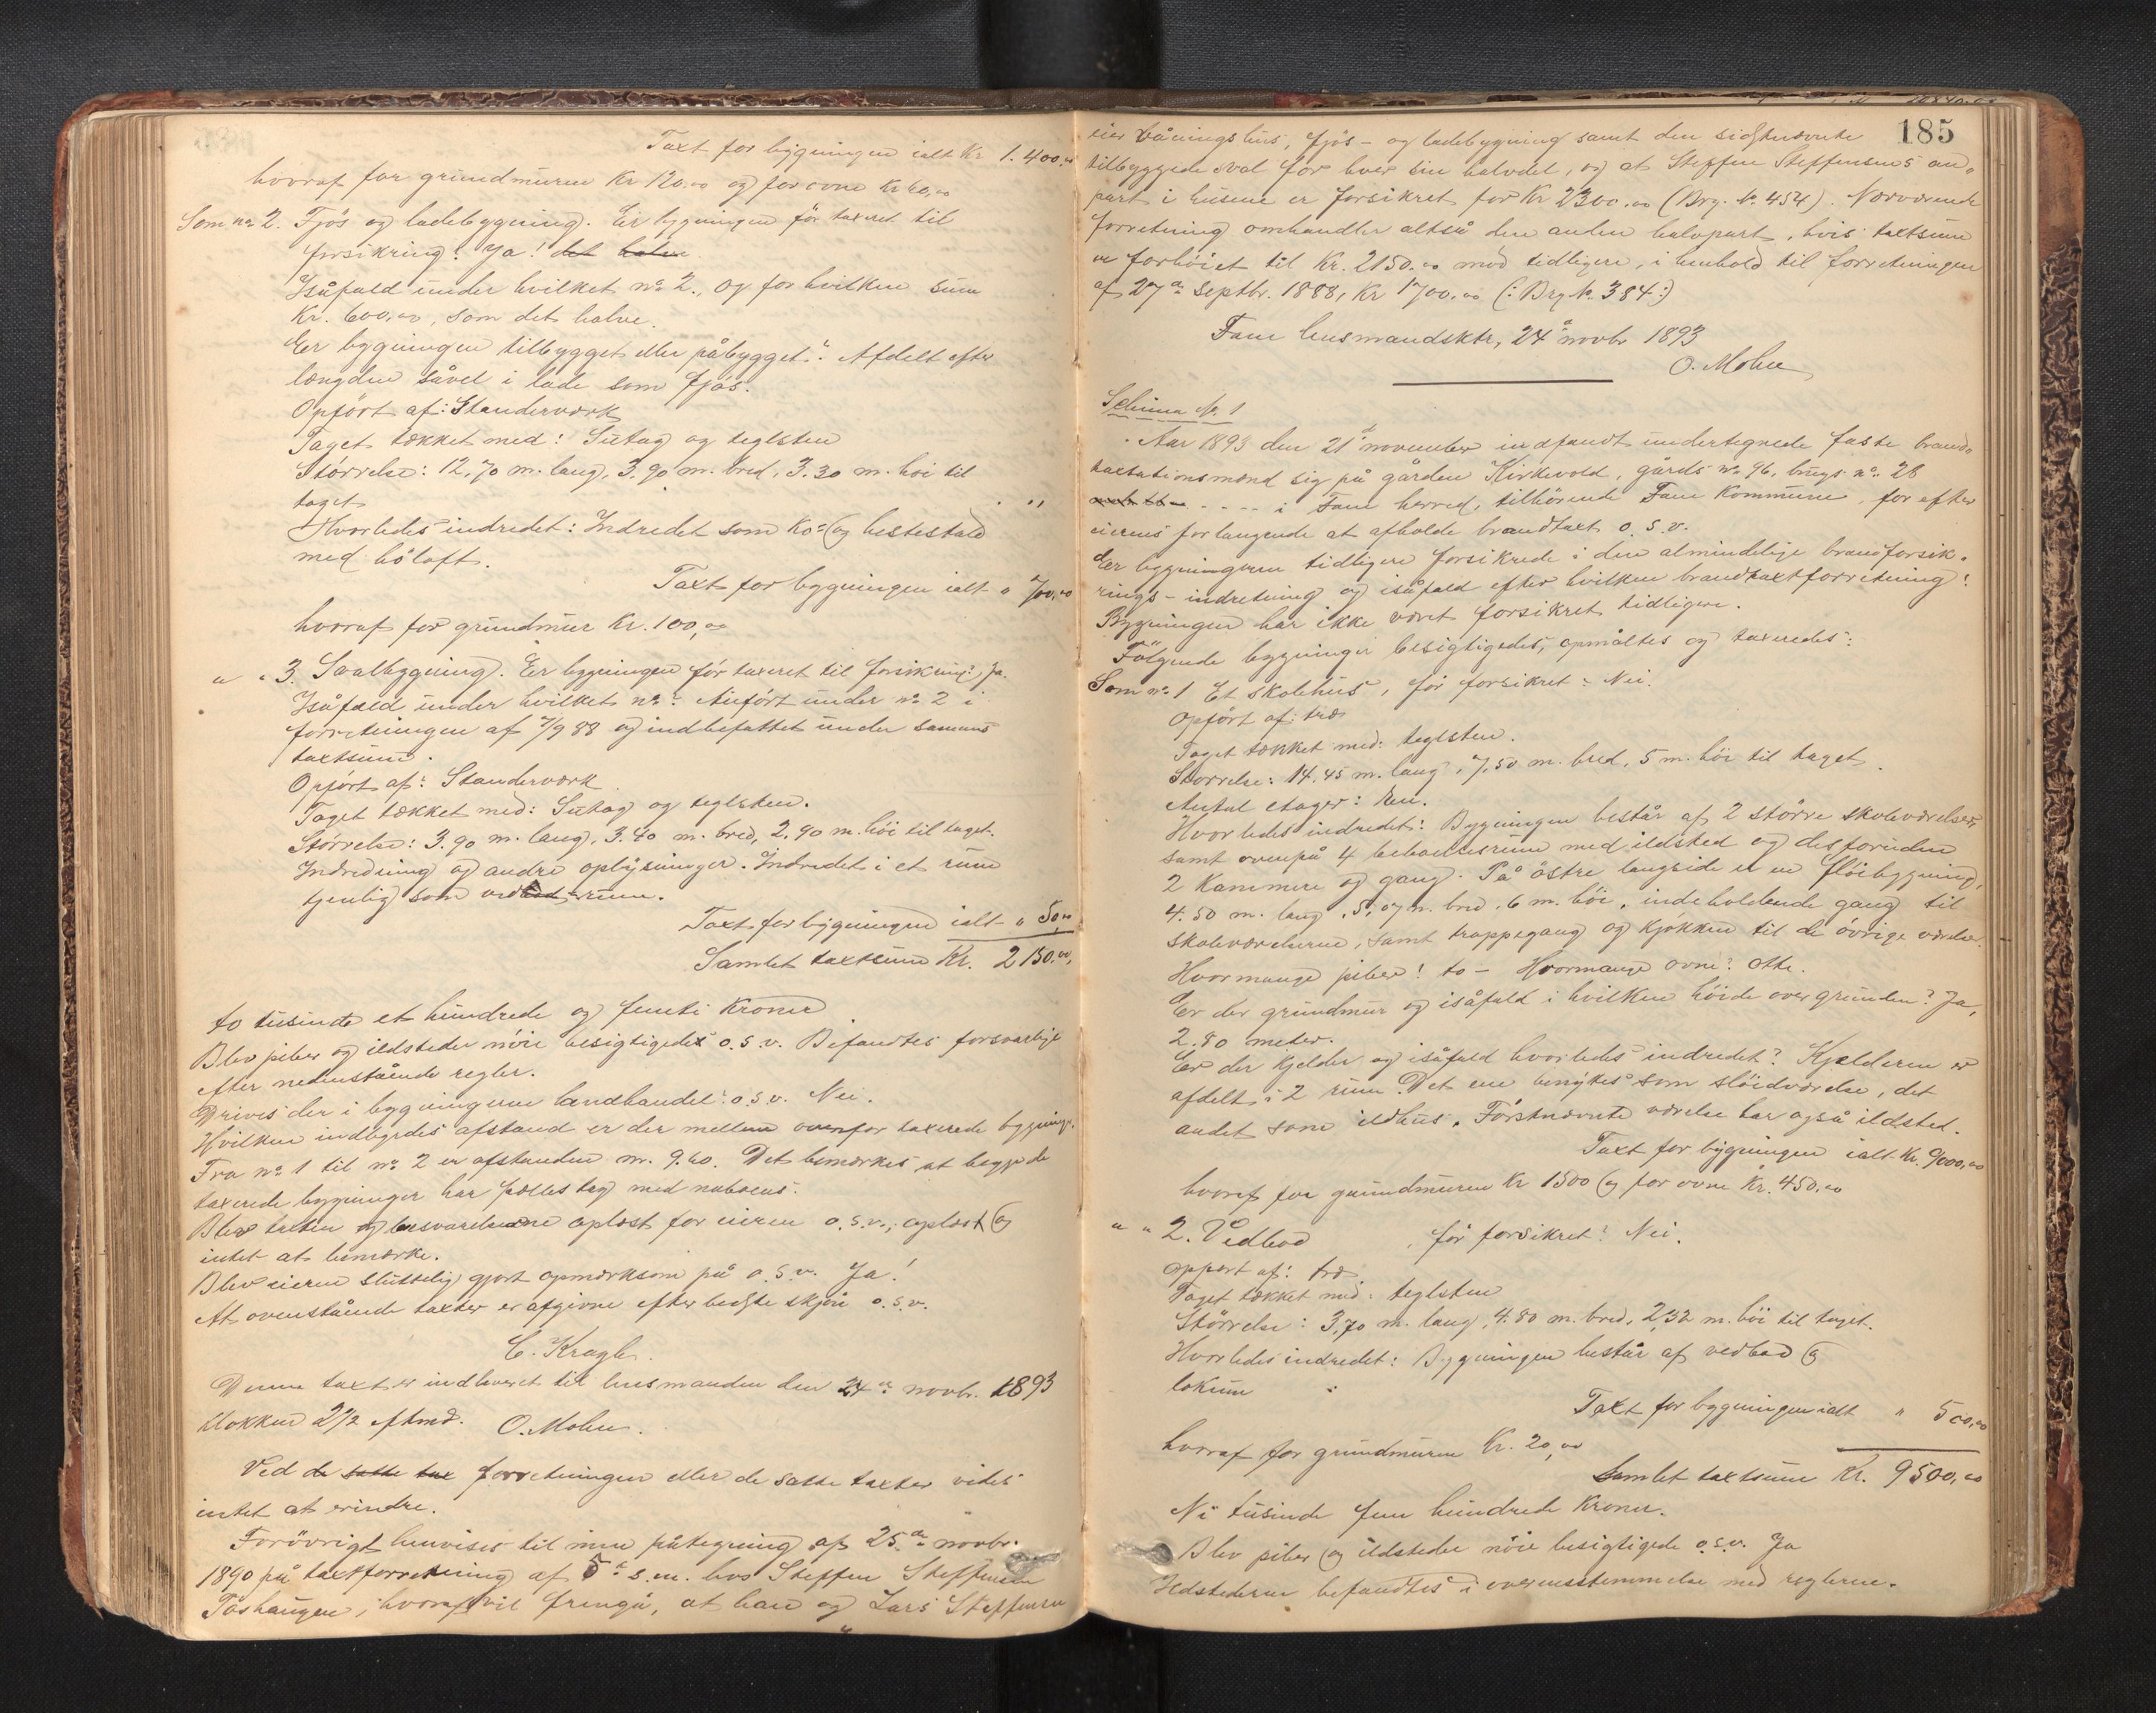 Taxt for bygningen ialt Kr 1.400,00
hvoraf for grundmuren Kr 120,00 og for ovne Kr 40,00
Som no 2. Fjös og ladebygning. Er bygningen för taxeret til
forsikring? Ja! det halve
Isåfald under hvilket no 2., og for hvilken sum
Kr. 600,00, som det halve.
Er bygningen tilbygget eller påbygget? Afdelt efter
længden såvel i lade som fjös.
Opfört af: Standerværk
Taget tækket med: Sutag og teglsten
Störrelse: 12,70 m. lang, 3.90 m. bred, 3.30 m. höi til
taget
Hvorledes indredet: Indredet som ko- og hestestald
med höloft.
Taxt for bygningen ialt " 700,00
hvoraf for grundmur Kr. 100,00
" " 3. Svalbygning. Er bygningen för taxeret til forsikring? Ja.
Isåfald under hvilket no: Anfört under no 2 i
forretningen af 7/9 88 og indbefattet under samme
taxtsum.
Opfört af: Standerværk
Taget tækket med: Sutag og teglsten.
Störrelse: 3.90 m. lang, 3.40 m. bred, 2.90 m. höi til taget.
Indredning og andre oplysninger. Indredet i et rum
tjenlig som vedrum.
Taxt for bygningen ialt " 50,00
Samlet taxtsum Kr. 2150.00,
to tusinde et hundrede og femti Kroner
Blev piber og ildsteder nöie besigtigedes o.s.v. Befandtes forsvarlige
efter nedenstående regler.
Drives der i bygningerne landhandel? o.s.v. Nei.
Hvilken indbyrdes afstand er der mellem ovenfor taxerede bygninger.
Fra no 1 til no 2 er afstanden m. 9.60. Det bemærkes at begge de
taxerede bygninger har fælles tag med naboens.
Blev taxten og besvarelserne oplæst for eieren o.s.v., oplæst og
intet at bemærke.
Blev eieren sluttelig gjort opmærksom på o.s.v. Ja!
At ovenstående taxter er afgivne efter bedste skjön o.s.v.
C. Kragh.
Denne taxt er indleveret til lensmanden den 24de novbr. 1893
klokken 2 1/2 eftmd. O. Mohn.
Ved de satte tax forretningen eller de satte taxter vides
intet at erindre.
Forövrigt henvises til min påtegning af 25de novbr.
1890 på taxtforretning af 5te s.m. hos Steffen Steffensen
Töshaugen, hvoraf vil fremgå, at han og Lars Steffensen
185
eier våningshus, fjös- og ladebygning samt den sidstnævnte
tilbyggede sval for hver sin halvdel, og at Steffen Steffensens an-
part i husene er forsikret for Kr 2300.00 (Brg. No. 454). Nærværende
forretning omhandler altså den anden halvpart, hvis taxtsum
er forhöiet til Kr. 2150.00 mod tidligere, i henhold til forretningen
af 27de Septbr. 1888, Kr 1700.00 (: Brg No. 384:)
Fane lensmandsktr, 24de novbr 1893
O. Mohn
Schema No. 1
Aar 1893 den 21de november indfandt undertegnede faste brand-
taxtationsmænd sig på gården Kirkevold, gårds no 96, brugs no. 26
i Fane herred, tilhörende Fane Kommune, for efter
eierens forlangende at afholde brandtaxt o.s.v.
Er bygningerne tidligere forsikrede i den almindelige brandforsik-
rings-indretning og isåfald efter hvilken brandtaxtforretning?
Bygningen har ikke været forsikret tidligere.
Fölgende bygninger besigtigedes, opmåltes og taxeredes:
Som no 1 Et skolehus, för forsikret? Nei.
Opfört af: træ
Taget tækket med: teglsten.
Störrelse: 14.45 m. lang, 7,50 m. bred, 5 m. höi til taget.
Antal etager: En.
Hvorledes indredet: Bygningen består af 2 större skoleværelser,
samt ovenpå 4 beboelsesrum med ildsted og desforuden
2 Kammere og gang. På östre langside er en flöibygning,
4.50 m. lang, 5,07 m. bred, 6 m. höi, indeholdende gang til
skoleværelserne, samt trappegang og kjökken til de övrige værelser.
Hvormange piber? to - Hvormange ovne? otte.
Er der grundmur og isåfald i hvilken höide over grunden? Ja,
2.80 meter.
Er der Kjelder og isåfald hvorledes indredet? Kjælderen er
afdelt i 2 rum. Det ene benyttes som slöidværelse, det
andet som ildhus. Förstnævnte værelse har også ildsted.
Taxt for bygningen ialt Kr. 9000,00
hvoraf for grundmuren Kr 1500 og for ovne Kr. 450,00
" " 2. Vedbod, för forsikret? Nei.
Opfört af: træ
Taget tækket med: teglsten
Störrelse: 3,70 m. lang, 4.80 m. bred, 2,32 m. höi til taget.
Hvorledes indredet: Bygningen består af vedbod og
lokum
Taxt for bygningen ialt " 500,00
hvoraf for grundmuren Kr. 20,00
Samlet taxtsum Kr. 9500,00
Ni tusinde fem hundrede Kroner.
Blev piber og ildsteder nöie besigtigede o.s.v. Ja
Ildstederne befandtes i overensstemmelse med reglerne.